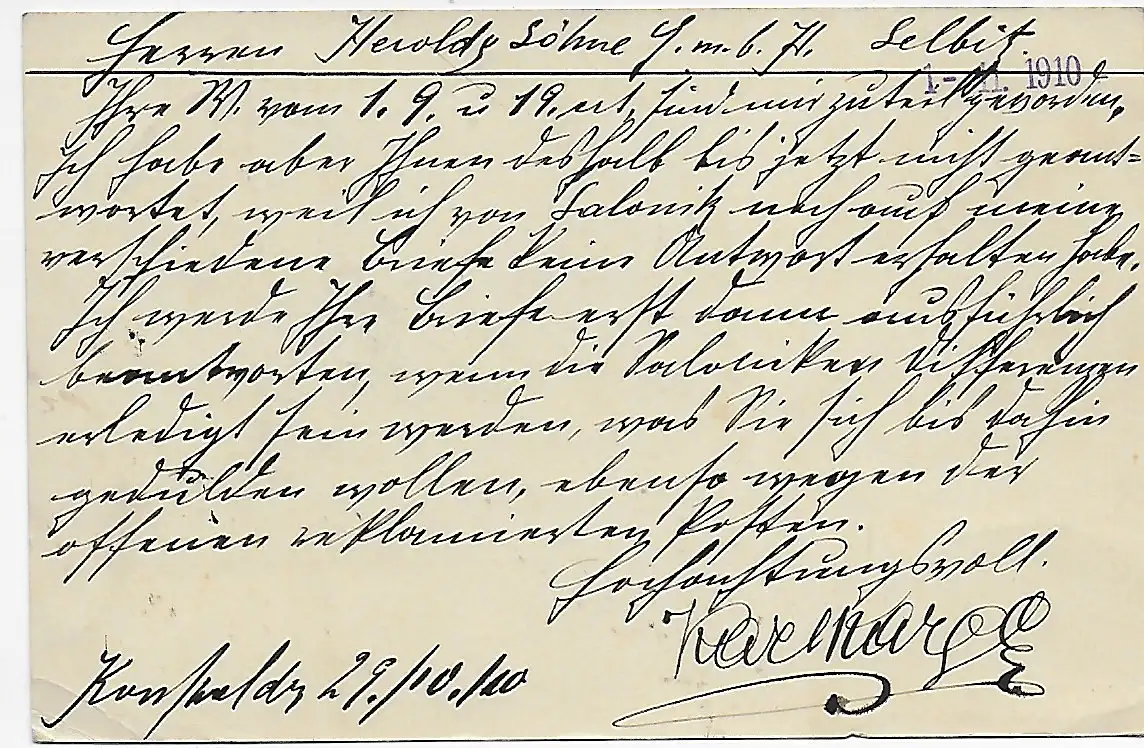 Herren Herolds Söhne G.m.b.H. Selbitz
1- 11. 1910
Ihre W. vom 1. 9. u 19. crt. sind mir zuteil geworden,
ich habe aber Ihnen deshalb bis jetzt nicht geant=
wortet, weil ich von Salonik noch auf meine
verschiedene Briefe keine Antwort erhalten habe.
Ich werde Ihre Briefe erst dann ausführlich
beantworten, wenn die Saloniker Differenzen
erledigt sein werden, was Sie sich bis dahin
gedulden wollen, ebenso wegen der
offenen reklamierten Posten.
Hochachtungsvoll.
Karl
29./10./10